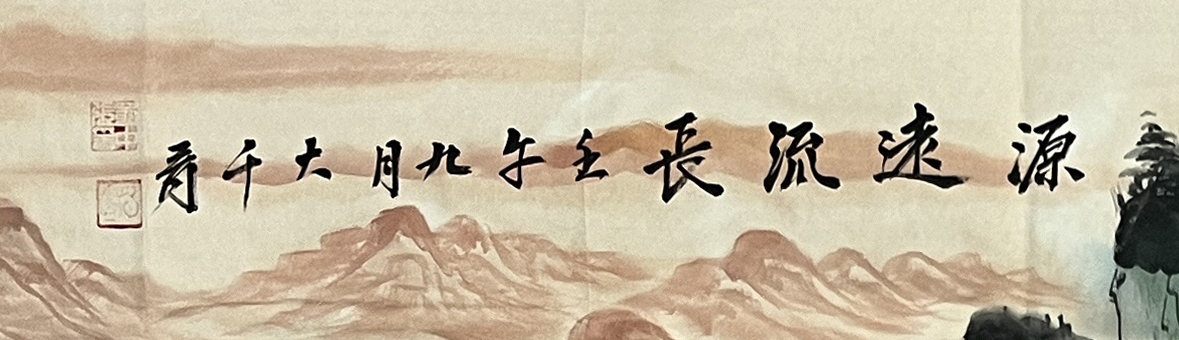 源遠流長壬午九月大千爰